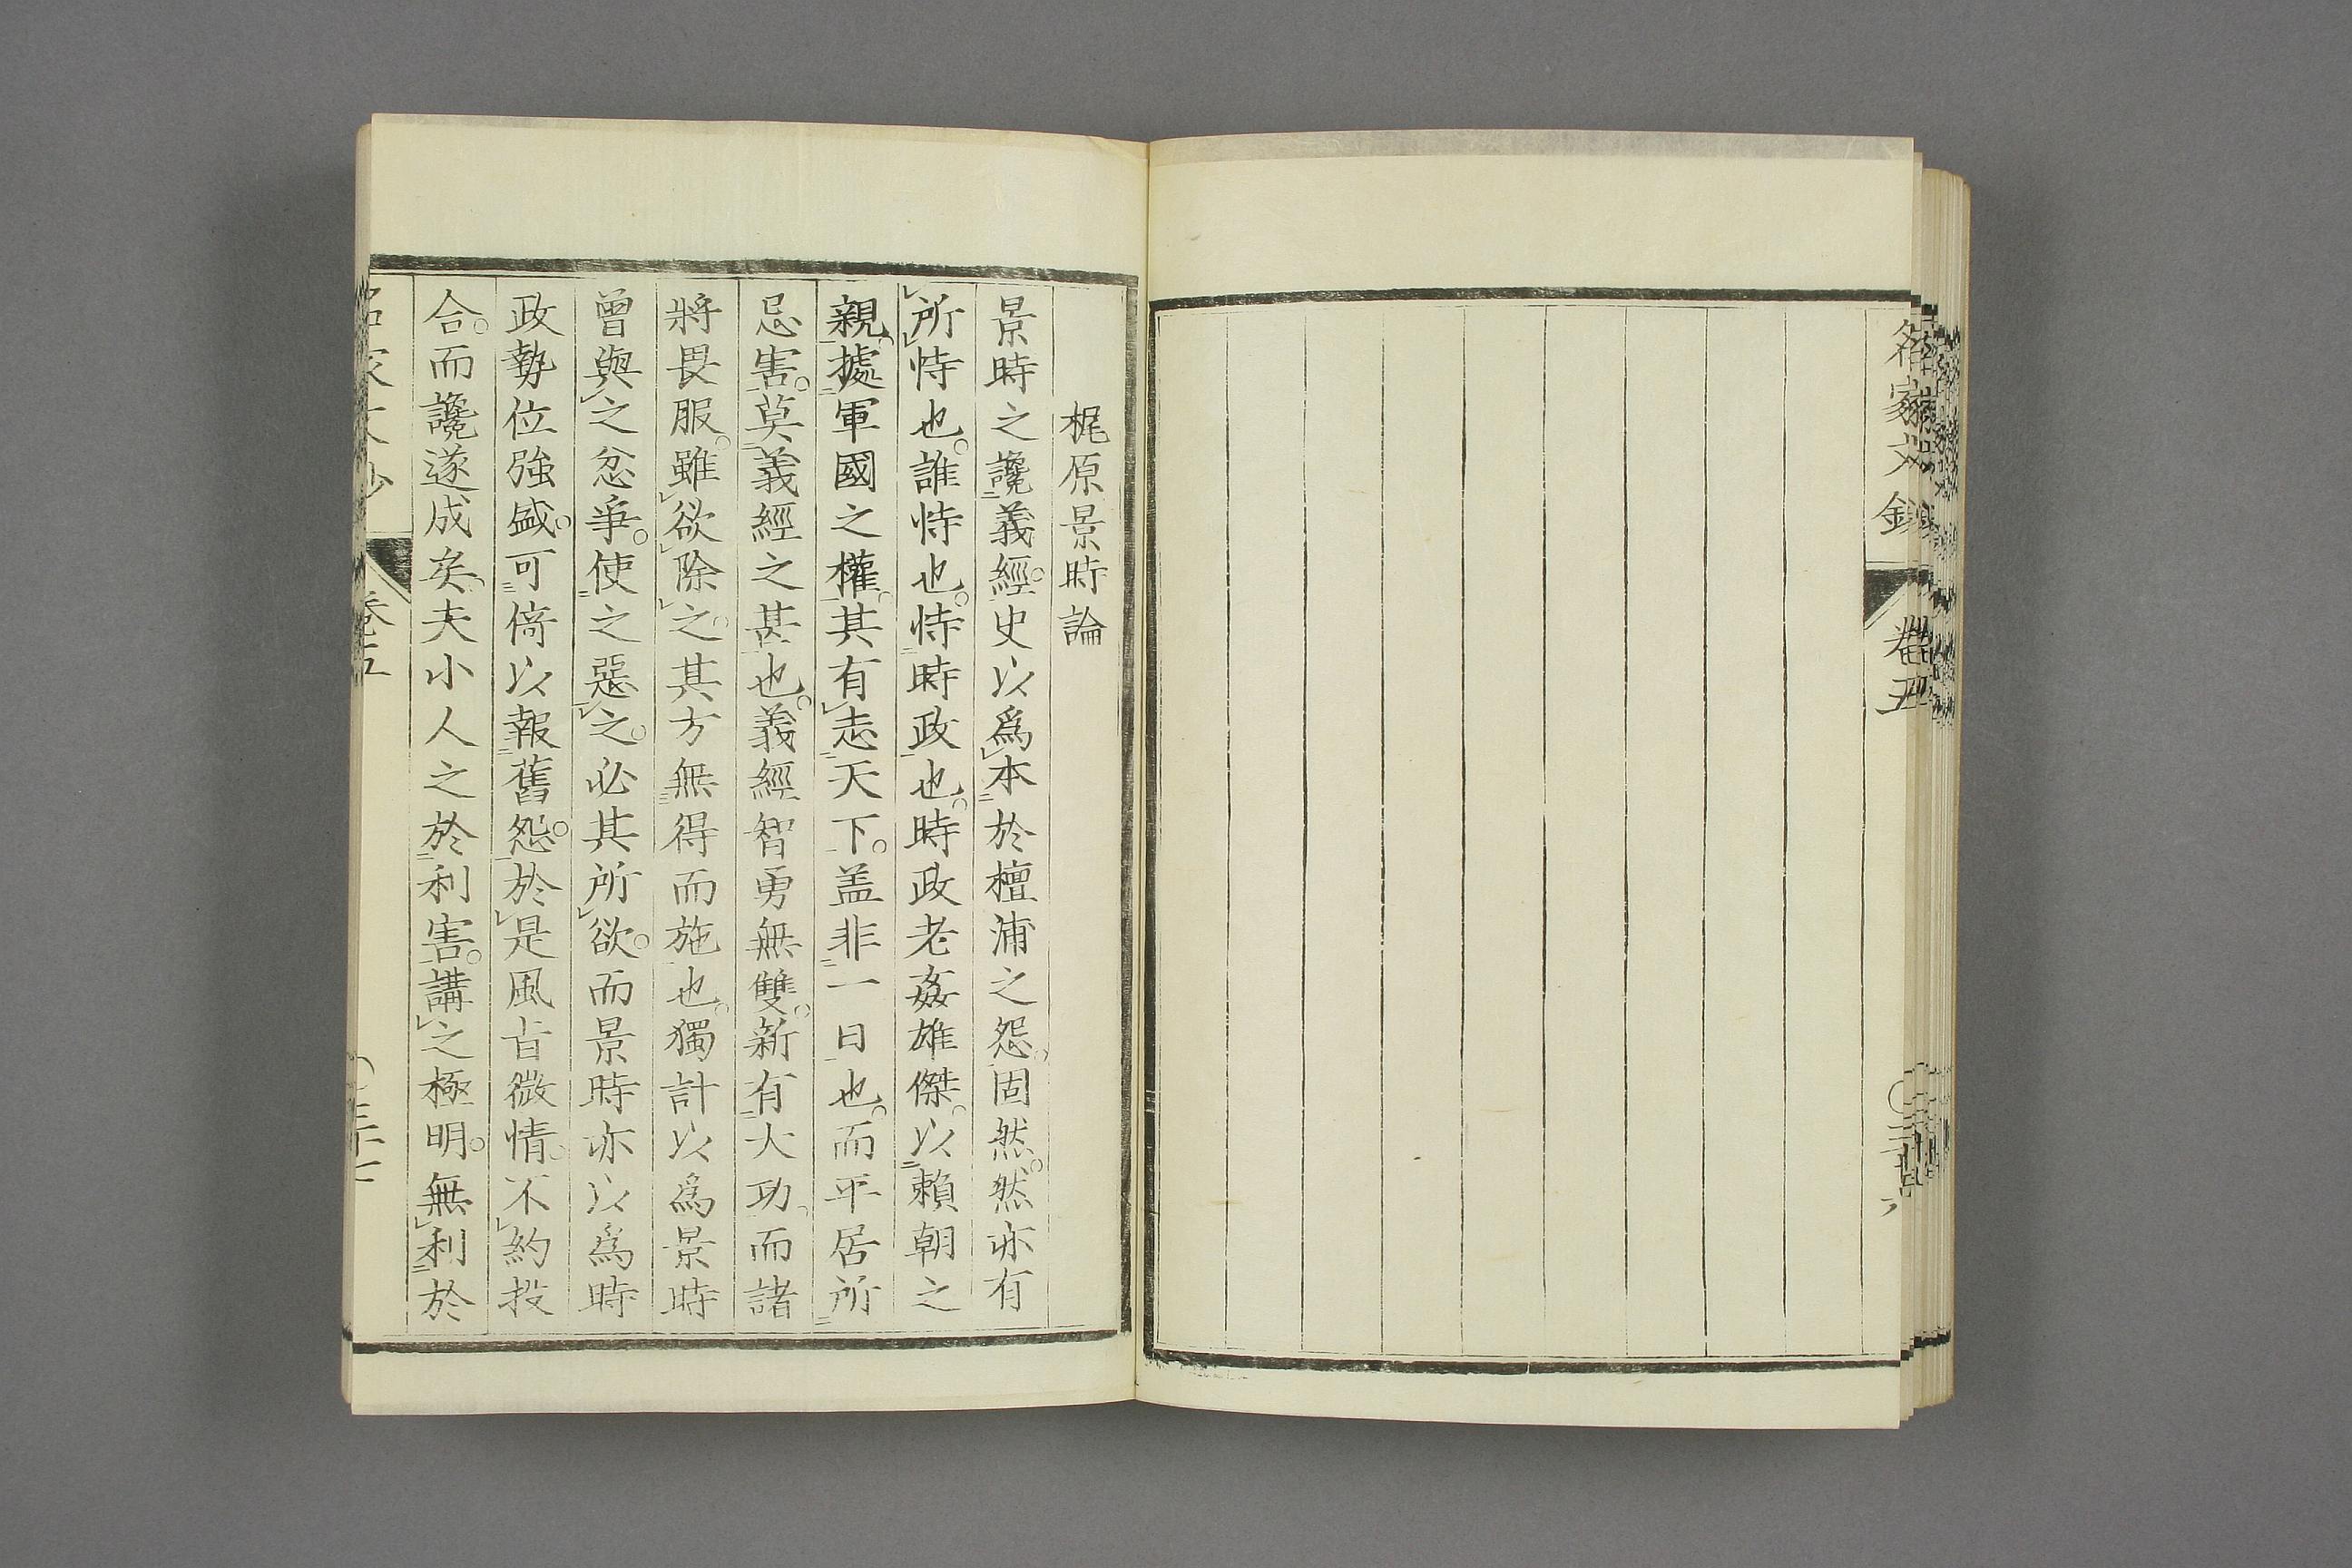 名家文鈔 卷五
梶原景時論
景時之讒義經。史以爲本於檀浦之怨。固然。然亦有
所恃也。誰恃也。恃時政也。時政老姦雄傑。以賴朝之
親。據軍國之權。其有志天下。盖非一日也。而平居所
忌害。莫義經之甚也。義經智勇無雙。新有大功。而諸
將畏服。雖欲除之。其方無得而施也。獨計以爲景時
曾與之忿爭。使之惡之。必其所欲。而景時亦以爲時
政勢位強盛。可倚以報舊怨。於是風旨微情。不約投
合。而讒遂成矣。夫小人之於利害。講之極明。無利於
名家文鈔 卷五